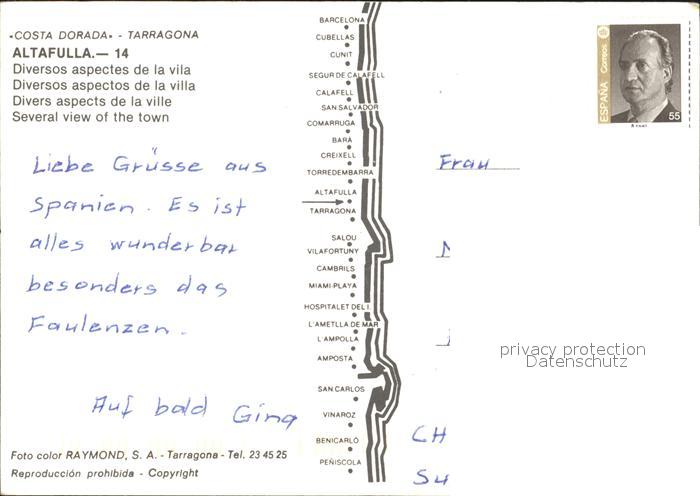 «COSTA DORADA» - TARRAGONA
ALTAFULLA.— 14
Diversos aspectes de la vila
Diversos aspectos de la villa
Divers aspects de la ville
Several view of the town
Liebe Grüsse aus
Spanien. Es ist
alles wunderbar
besonders das
Faulenzen.
Auf bald Gina
Foto color RAYMOND, S. A. - Tarragona - Tel. 23 45 25
Reproducción prohibida - Copyright
BARCELONA
CUBELLAS
CUNIT
SEGUR DE CALAFELL
CALAFELL
SAN SALVADOR
COMARRUGA
BARA
CREIXELL
TORREDEMBARRA
ALTAFULLA
TARRAGONA
SALOU
VILAFORTUNY
CAMBRILS
MIAMI-PLAYA
HOSPITALET DEL I.
L'AMETLLA DE MAR
L'AMPOLLA
AMPOSTA
SAN CARLOS
VINAROZ
BENICARLÓ
PEÑISCOLA
ESPAÑA
Correos
55
Frau
CH
Su
privacy protection
Datenschutz